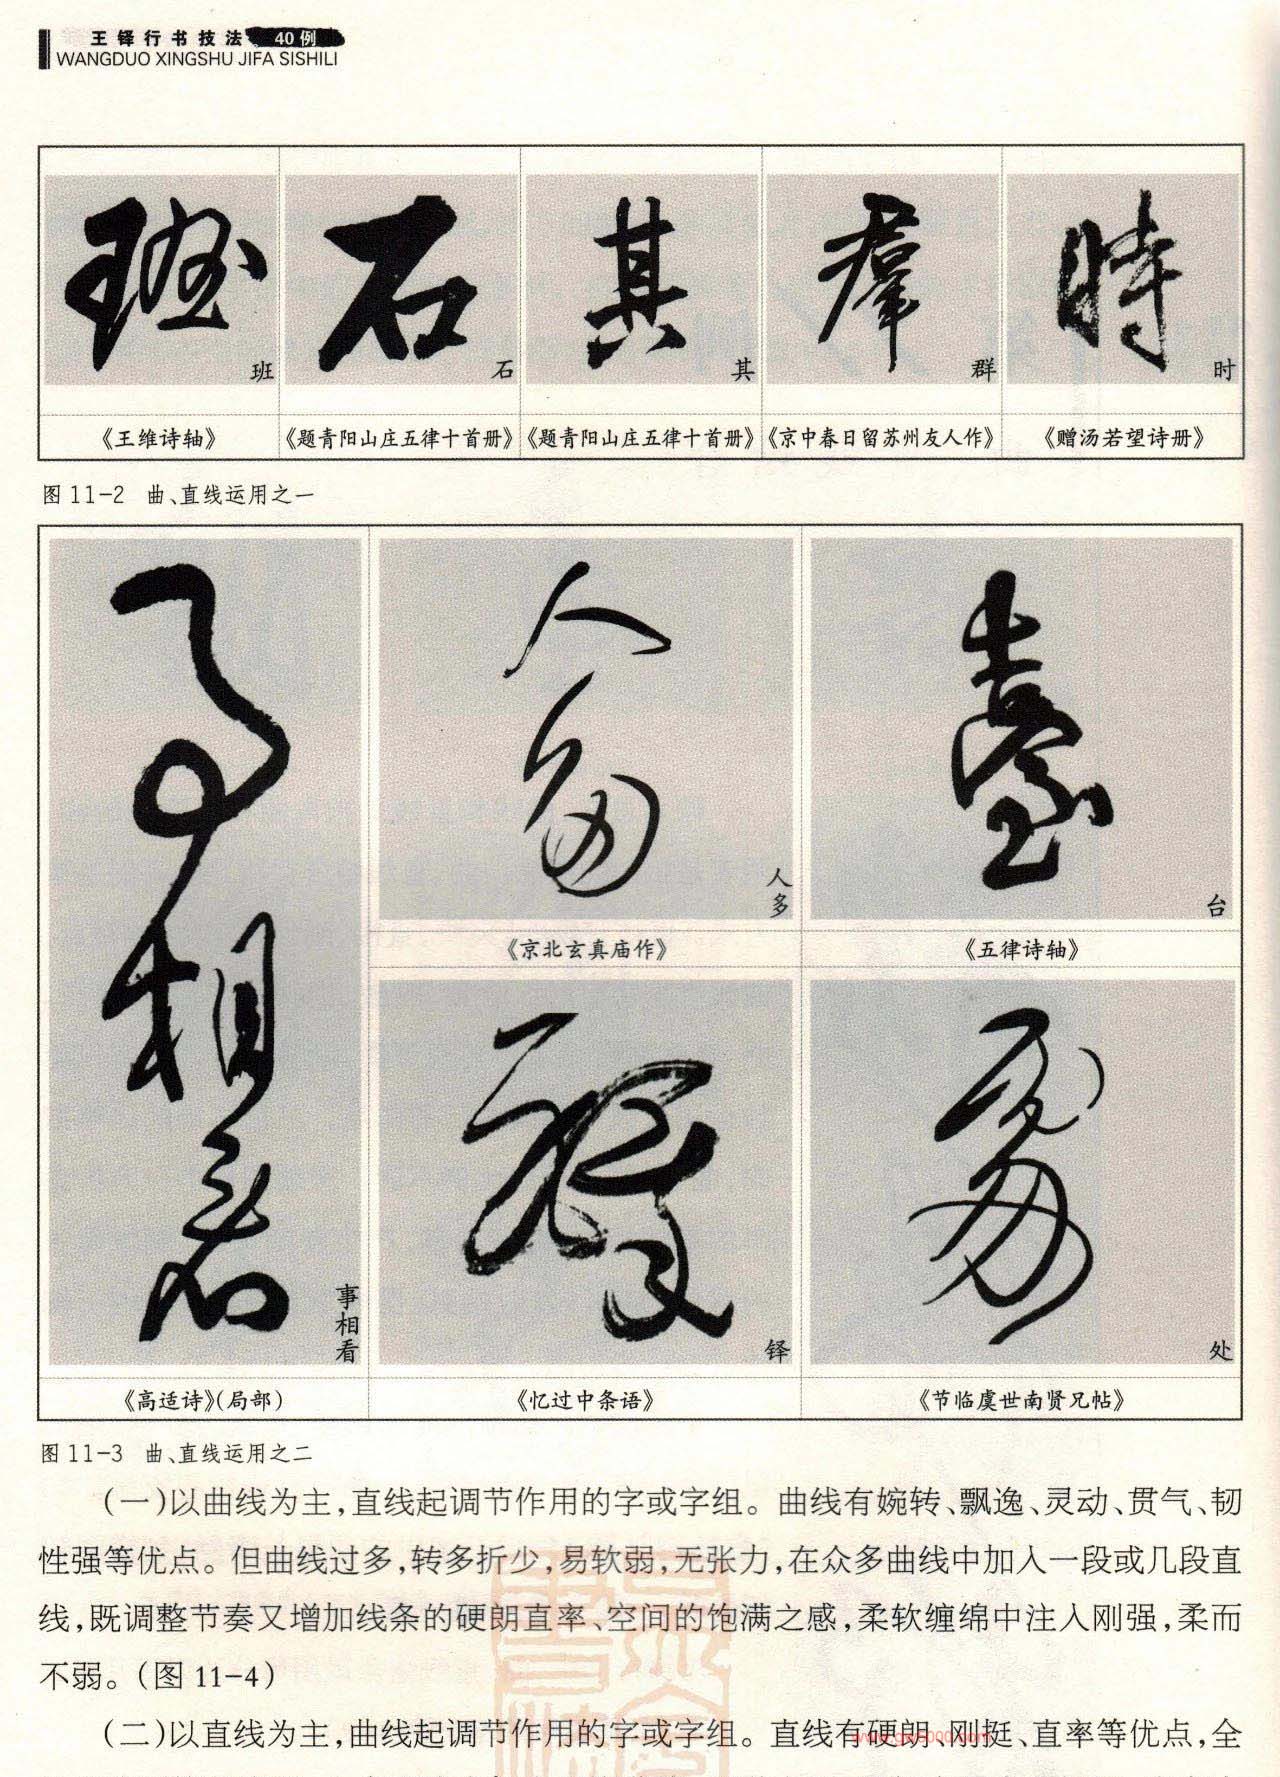 王铎行书技法 40例
WANGDUO XINGSHU JIFA SISHILI
班 石 其 群 时
《王维诗轴》 《题青阳山庄五律十首册》 《题青阳山庄五律十首册》 《京中春日留苏州友人作》 《赠汤若望诗册》
图 11-2 曲、直线运用之一
事相看
《高适诗》(局部)
人多
《京北玄真庙作》
台
《五律诗轴》
铎
《忆过中条语》
处
《节临虞世南贤兄帖》
图 11-3 曲、直线运用之二
(一)以曲线为主,直线起调节作用的字或字组。曲线有婉转、飘逸、灵动、贯气、韧
性强等优点。但曲线过多,转多折少,易软弱,无张力,在众多曲线中加入一段或几段直
线,既调整节奏又增加线条的硬朗直率、空间的饱满之感,柔软缠绵中注入刚强,柔而
不弱。(图 11-4)
(二)以直线为主,曲线起调节作用的字或字组。直线有硬朗、刚挺、直率等优点,全